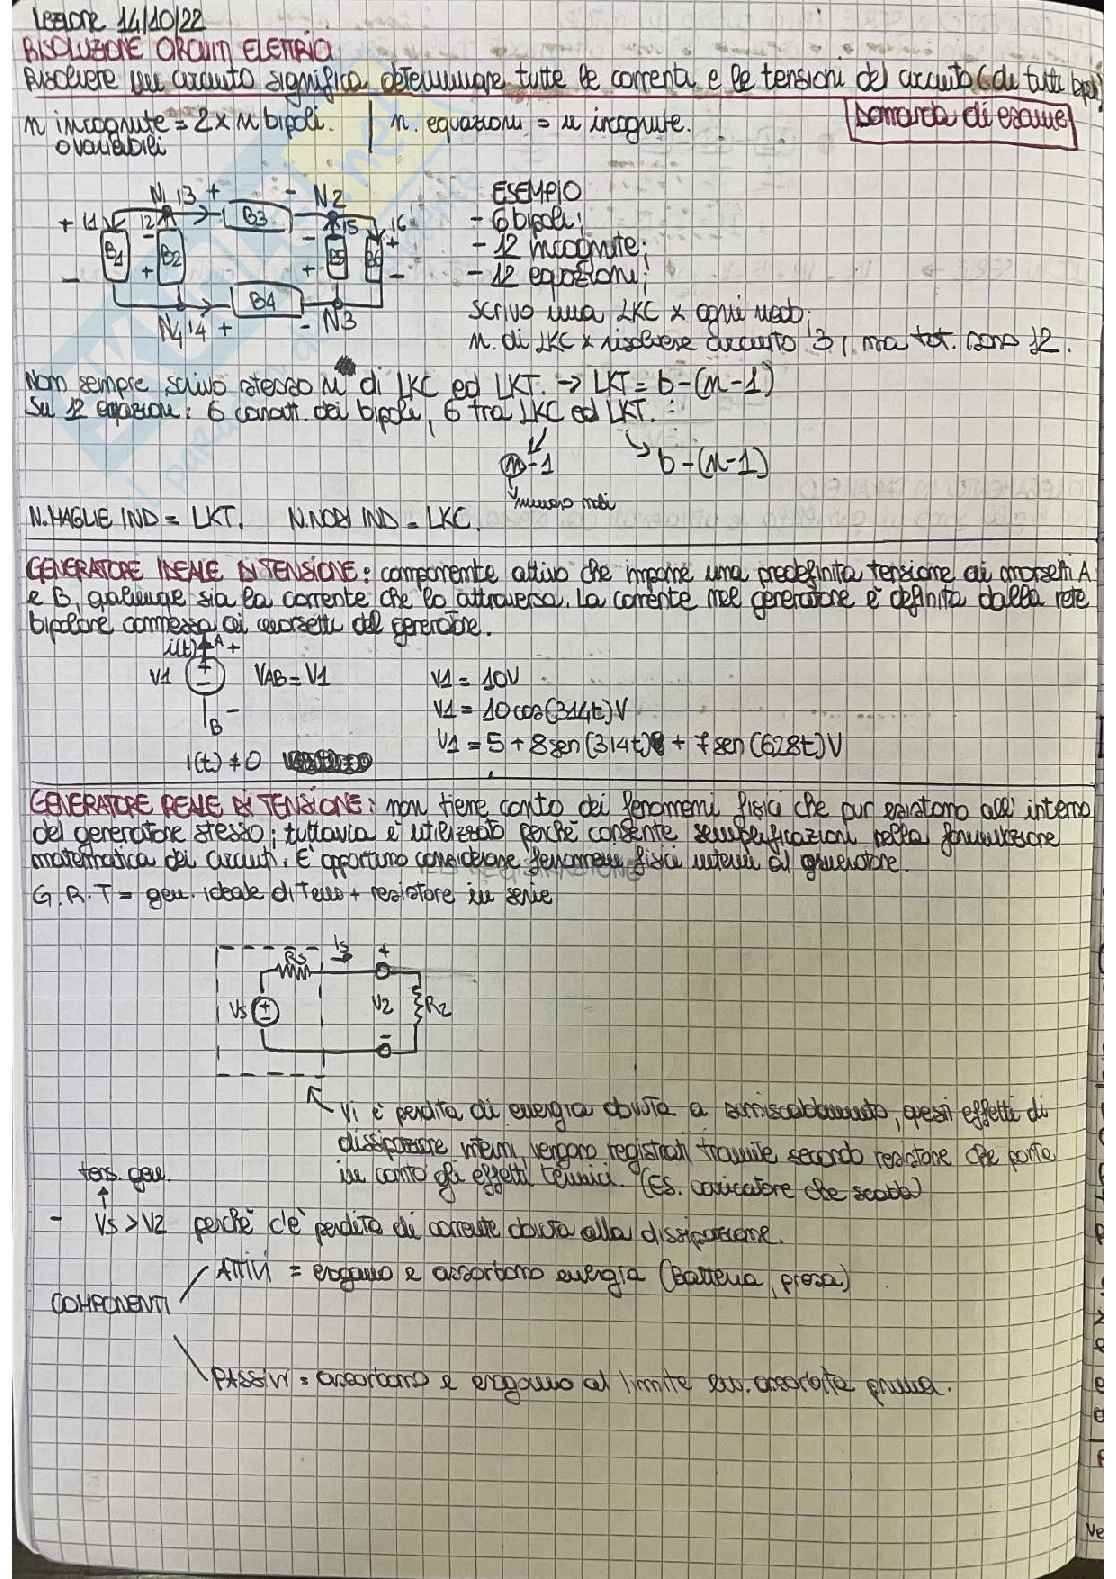 Lezione 14/10/22
RISOLUZIONE CIRCUITI ELETTRICI
Risolvere un circuito significa determinare tutte le correnti e le tensioni del circuito (di tutti bipoli)
n incognite = 2 x n bipoli. | n. equazioni = n incognite.
o variabili
Domanda di esame
N1 i3 + - N2
+ i1 i2 - B3 - i5 i6 +
B1 B2 B5 B6
- + + -
B4
N4 i4 + - N3
ESEMPIO
- 6 bipoli;
- 12 incognite;
- 12 equazioni;
scrivo una LKC x ogni nodo;
n. di LKC x risolvere circuito 3, ma tot. sono 12.
Non sempre scrivo stesso n° di LKC ed LKT. → LKT = b-(n-1)
Su 12 equazioni: 6 caratt. dei bipoli, 6 tra LKC ed LKT.
n-1 b-(n-1)
numero nodi
N. MAGLIE IND = LKT. N. NODI IND = LKC.
GENERATORE IDEALE DI TENSIONE: componente attivo che impone una predefinita tensione ai morsetti A
e B, qualunque sia la corrente che lo attraversa. La corrente nel generatore è definita dalla rete
bipolare connessa ai morsetti del generatore.
i(t) A +
V1 + - VAB = V1
B -
i(t) ≠ 0
V1 = 10V
V1 = 10cos(314t)V
V1 = 5 + 8sen(314t) + 7sen(628t)V
GENERATORE REALE DI TENSIONE: non tiene conto dei fenomeni fisici che pur esistono all'interno
del generatore stesso; tuttavia è utilizzato perché consente semplificazioni nella formulazione
matematica dei circuiti. E' opportuno considerare fenomeni fisici interni al generatore.
G.R.T = gen. ideale di tens + resistore in serie
Rs is +
Vs + - V2 R2
-
Vi è perdita di energia dovuta a surriscaldamento, questi effetti di
dissipazione interni vengono registrati tramite secondo resistore che porta
in conto gli effetti termici. (Es. caricatore che scotta)
tens. gen.
- Vs > V2 perché c'è perdita di corrente dovuta alla dissipazione.
COMPONENTI
ATTIVI = erogano e assorbono energia (Batteria, presa)
PASSIVI = assorbono e erogano al limite en. assorbita prima.